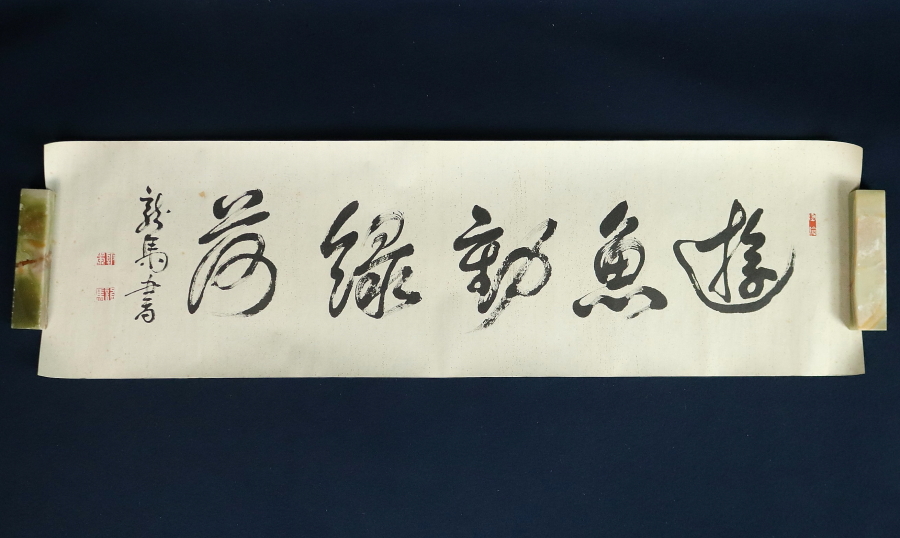 遊魚動緑荷
龍馬書